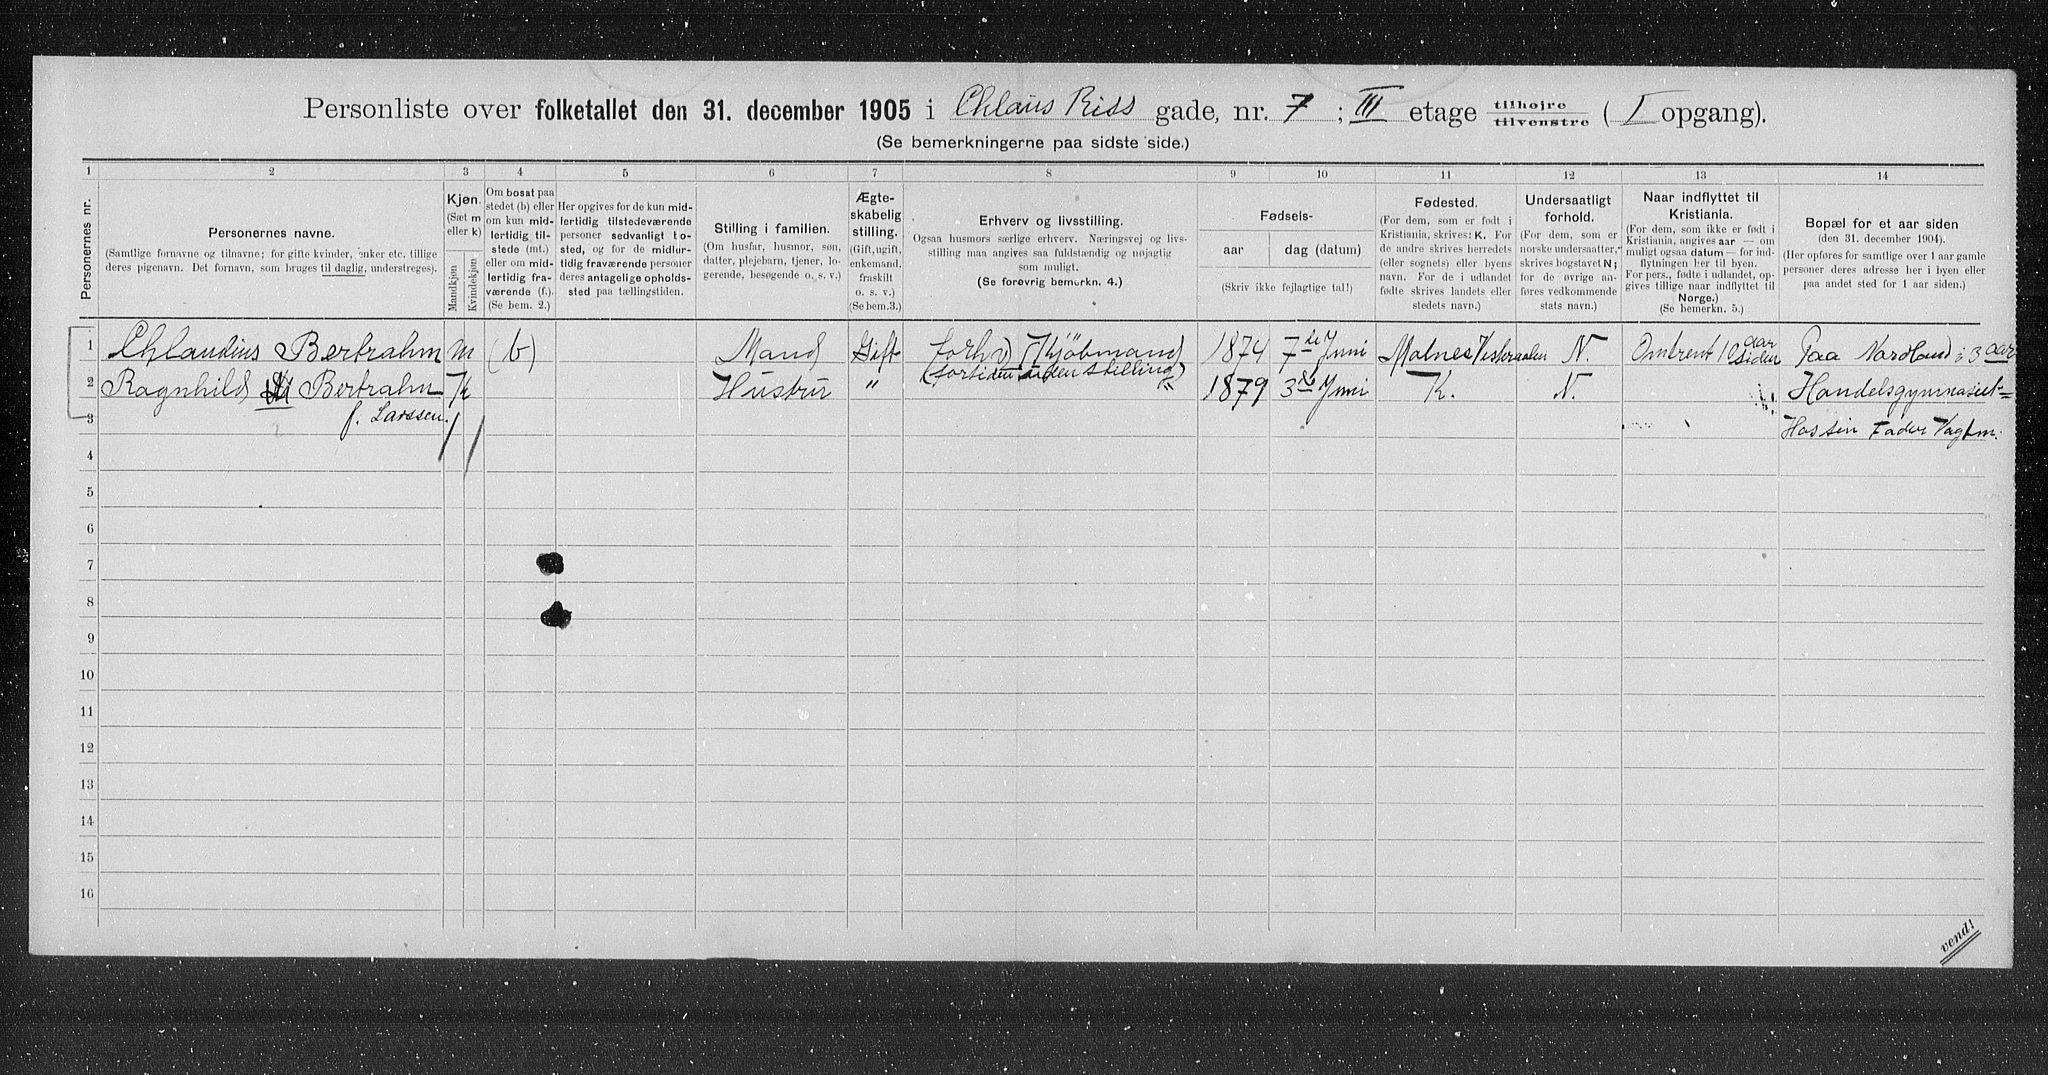 Personliste over folketallet den 31. december 1905 i Chlaus Riss gade, nr. 7 ; III etage tilhøjre tilvenstre ( I opgang).
(Se bemerkningerne paa sidste side.)
1 2 3 4 5 6 7 8 9 10 11 12 13 14
Personernes nr.
Personernes navne.
(Samtlige fornavne og tilnavne; for gifte kvinder, enker etc. tillige
deres pigenavn. Det fornavn, som bruges til daglig, understreges).
Kjøn.
(Sæt m
eller k)
Mandkjøn
Kvindekjøn
Om bosat paa
stedet (b) eller
om kun mid-
lertidig til-
stede (mt.)
eller om mid-
lertidig fra-
værende (f.).
(Se bem. 2.)
Her opgives for de kun mid-
lertidig tilstedeværende
personer sedvanligt bo-
sted, og for de midler-
tidig fraværende personer
deres antagelige opholds-
sted paa tællingstiden.
Stilling i familien.
(Om husfar, husmor, søn,
datter, plejebarn, tjener, lo-
gerende, besøgende o. s. v.)
Ægte-
skabelig
stilling.
(Gift, ugift,
enkemand,
fraskilt
o. s. v.)
(Se bem.3.)
Erhverv og livsstilling.
Ogsaa husmors særlige erhverv. Næringsvej og livs-
stilling maa angives saa fuldstændig og nøjagtig
som muligt.
(Se forøvrig bemerkn. 4.)
Fødsels-
aar
dag (datum)
(Skriv ikke fejlagtige tal!)
Fødested.
(For dem, som er født i
Kristiania, skrives: K. For
de andre skrives herredets
(eller sognets) eller byens
navn. For de i udlandet
fødte skrives landets eller
stedets navn.)
Undersaatligt
forhold.
(For dem, som er
norske undersaatter,
skrives bogstavet N;
for de øvrige an-
føres vedkommende
stats navn.)
Naar indflyttet til
Kristiania.
(For dem, som ikke er født i
Kristiania, angives aar — om
muligt ogsaa datum — for ind-
flytningen her til byen.
For pers., fødte i udlandet, op-
gives tillige naar indflyttet til
Norge.)
(Se bemerkn. 5.)
Bopæl for et aar siden
(den 31. december 1904).
(Her opføres for samtlige over 1 aar gamle
personer deres adresse her i byen eller
paa andet sted for 1 aar siden.)
1 Chlaudius Bertrahm m (b) Mand Gift forhv Kjøbmand 1874 7de Juni Malnes Vesteraalen N. Omtrent 10 aar siden Paa Nordland i 3 aar
(fortiden uden stilling)
2 Ragnhild Bertrahm K Hustru " " 1879 3 Juni K. N. Handelsgymnasiet
3 f. Larssen. Hos sin Fader Vagtm.
4
5
6
7
8
9
10
11
12
13
14
15
16
vend!